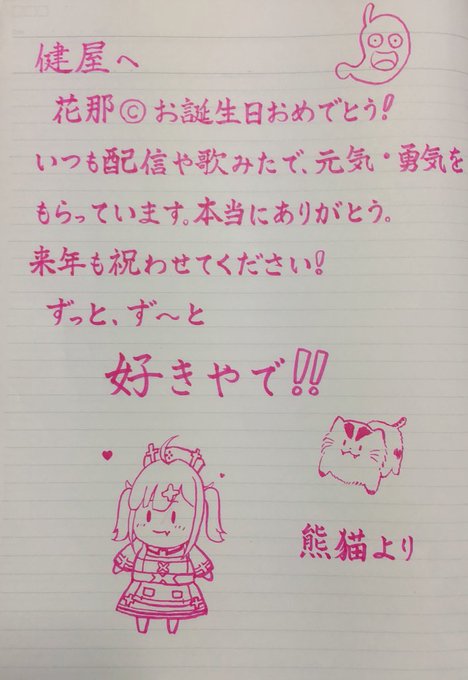 健屋へ
花那©お誕生日おめでとう!
いつも配信や歌みたで、元気・勇気を
もらっています。本当にありがとう。
来年も祝わせてください!
ずっと、ず〜と
好きやで!!
熊猫より